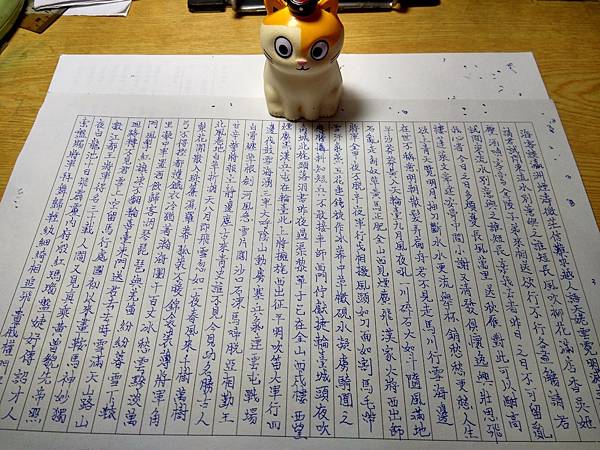 海客談瀛洲煙濤微茫信難求越人語天姥雲霓明滅或
風吹柳花滿店香吳姬
壓酒喚客嘗金陵子弟來相送欲行不行各盡觴請君
試問東流水別意與之誰短長棄我去者昨日之日不可留亂
我心者今日之日多煩憂長風萬里送秋雁對此可以酣高
樓蓬萊文章建安骨中間小謝又清發俱懷逸興壯思飛
欲上青天覽明月抽刀斷水水更流舉杯銷愁愁更愁人生
在世不稱意明朝散髮弄扁舟君不見走馬川行雪海邊
平沙莽莽黃入天輪臺九月風夜吼一川碎石大如斗隨風滿地
石亂走匈奴草黃馬正肥金山西見煙塵飛漢家大將西出師
將軍金甲夜不脫半夜軍行戈相撥風頭如刀面如割馬毛帶
雪汗氣蒸五花連錢旋作冰幕中草檄硯水凝虜騎聞之
應膽懾料知短兵不敢接車師西門佇獻捷輪臺城頭夜吹
城北旄頭落羽書昨夜過渠黎單于已在金山西戍樓西望
煙塵黑漢兵屯在輪臺北上將擁旄西出征平明吹笛大軍行四
邊伐鼓雪海湧三軍大呼陰山動虜塞兵氣連雲屯戰場
白骨纏草根劍河風急雪片闊沙口石凍馬蹄脫亞相勤王
甘苦辛誓將報主靜邊塵古來青史誰不見今見功名勝古人
北風捲地白草折胡天八月即飛雪忽如一夜春風來千樹萬樹
梨花開散入珠簾濕羅幕狐裘不暖錦衾薄將軍角
弓不得控都護鐵衣冷難著瀚海闌干百丈冰愁雲黲淡萬
里凝中軍置酒飲歸客胡琴琵琶與羌笛紛紛暮雪下轅
門風掣紅旗凍不翻輪臺東門送君去去時雪滿天山路山
迴路轉不見君雪上空留馬行處國初以來畫鞍馬神妙獨
數江都王將軍得名三十載人間又見真乘黃曾貌先帝照
夜白龍池十日飛霹靂內府殷紅瑪瑙盤婕妤傳詔才人
索盤賜將軍拜舞歸輕紈細綺相追飛貴戚權門